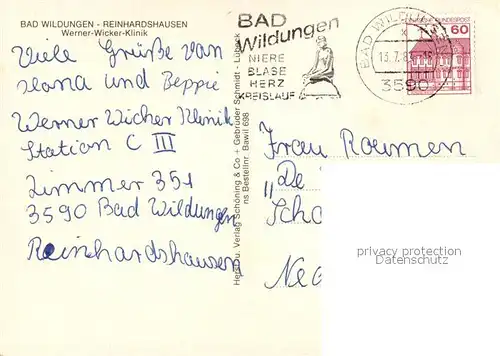 BAD WILDUNGEN - REINHARDSHAUSEN
Werner-Wicker-Klinik
Viele Grüße van
Hana und Beppie
Werner Wicher Klinik
Station C III
Zimmer 351
3590 Bad Wildungen
Reinhardshausen
BAD
Wildungen
NIERE
BLASE
HERZ
KREISLAUF
BAD WILDUNGEN
13.7.8
3590
BUNDESPOST
60
Verlag Schöning & Co + Gebrüder Schmidt - Lübeck
Bestellnr. Bawil 698
Frau Roumen
„De
Scha
Ne
privacy protection
Datenschutz